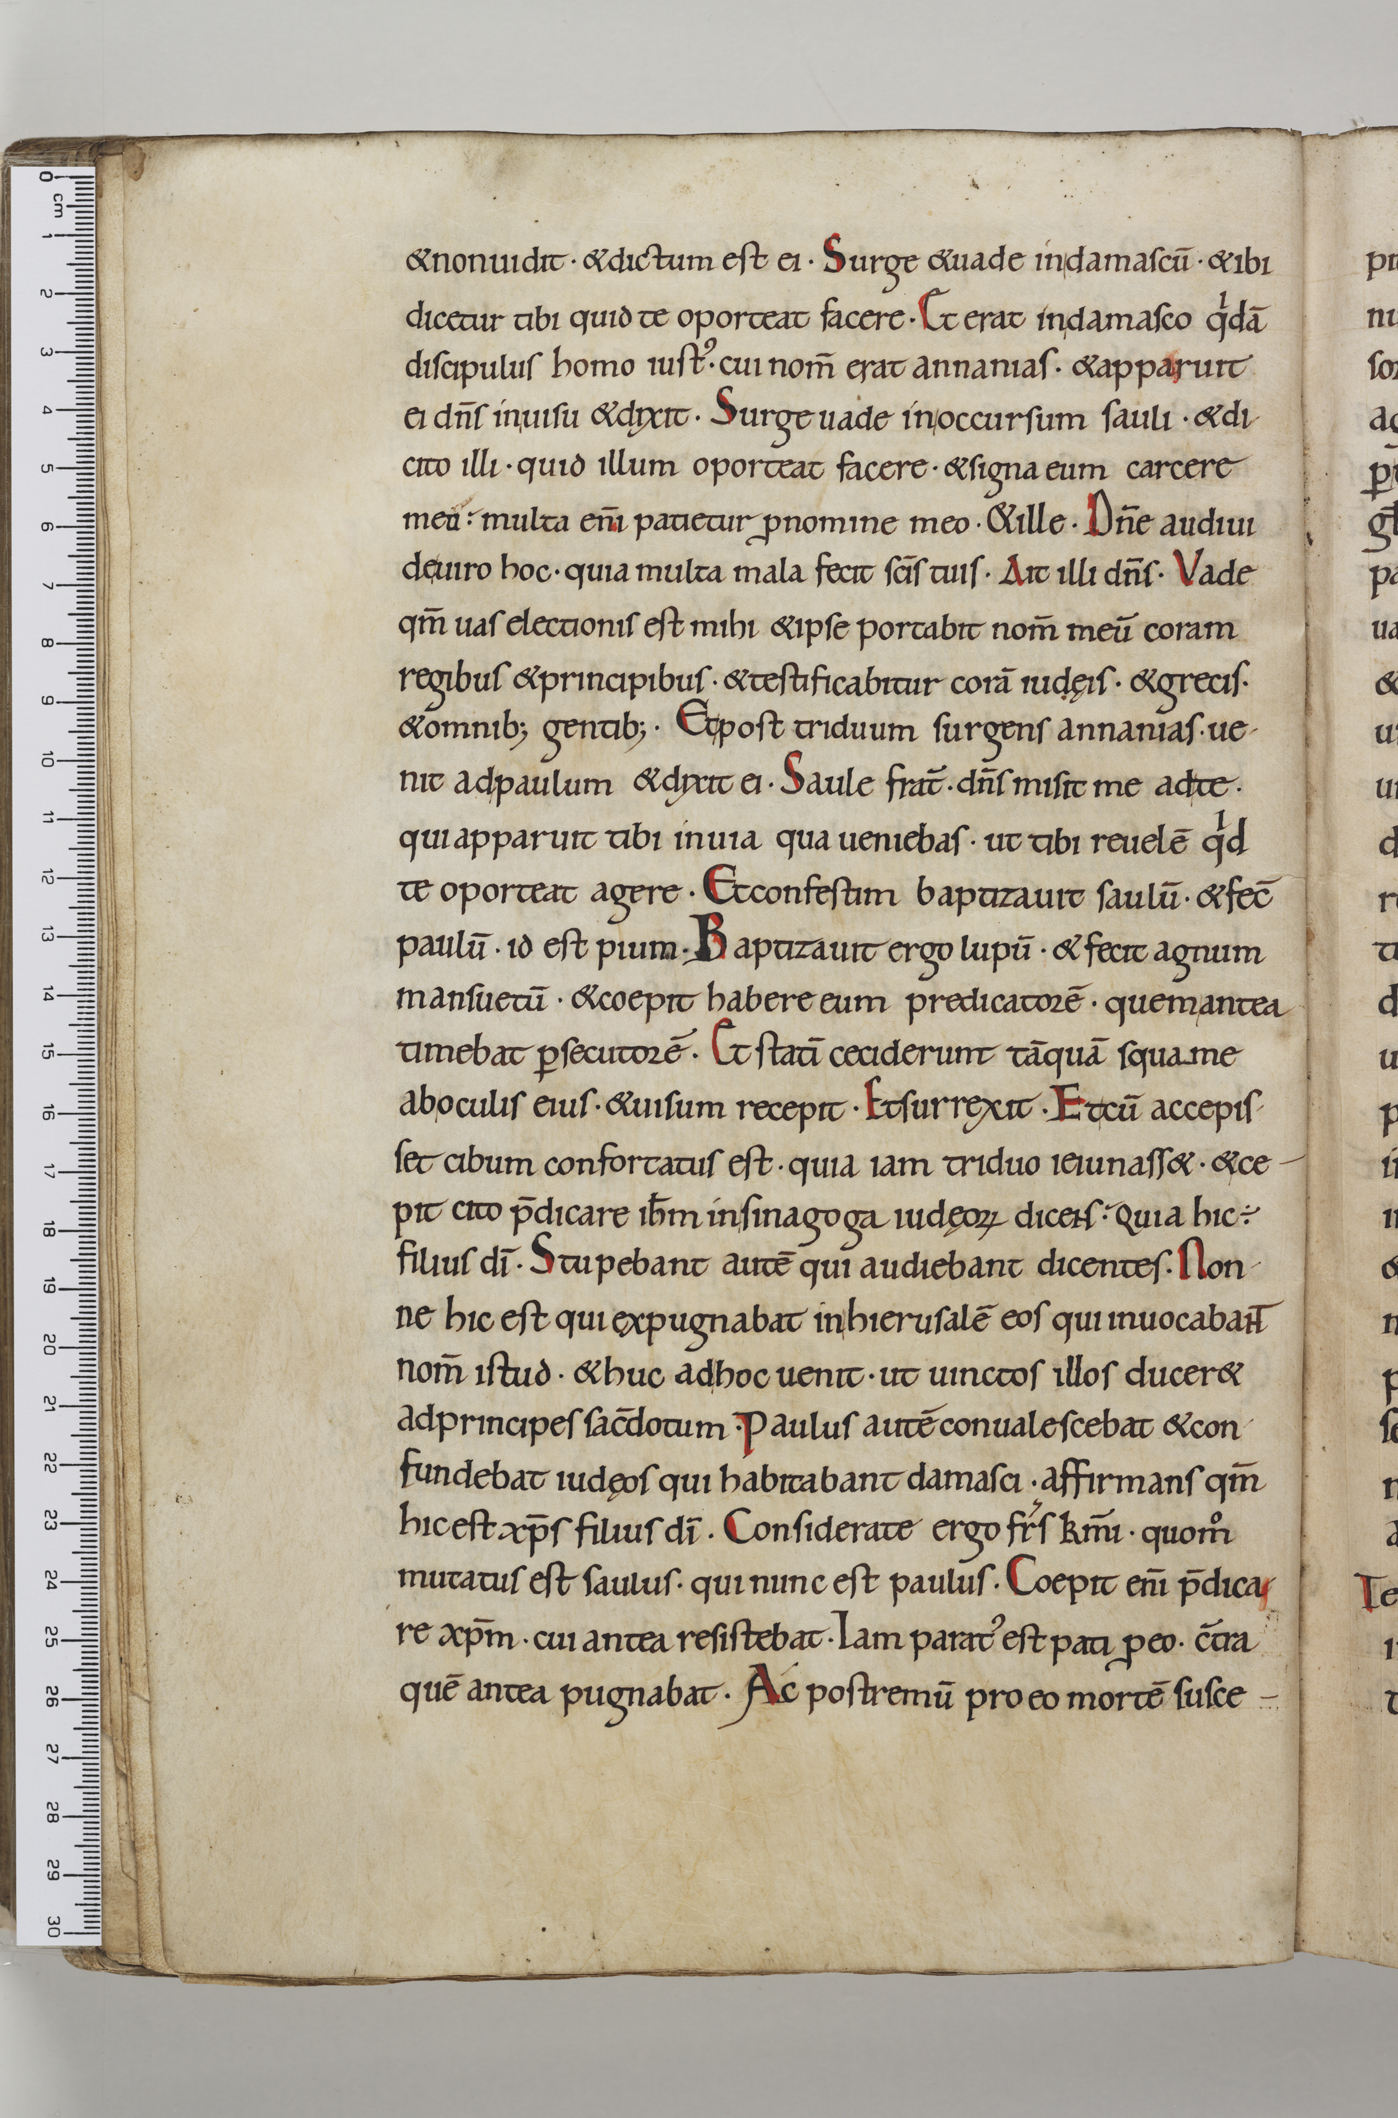 &nonuidit · &dictum est ei · Surge &uade indamascū · &ibi
dicetur tibi quid te oporteat facere · Et erat indamasco qͥdā
discipulus homo iustꝰ · cui nom̄ erat annanias · &apparuit
ei dn̄s inuisu &dixit · Surge uade inoccursum sauli · &di-
cito illi · quid illum oporteat facere · &signa eum carcere
meū · multa eni̅ patietur ꝓnomine meo · &ille · Dn̄e audiui
deuiro hoc · quia multa mala fecit sc̄is tuis · Ait illi dn̄s · Vade
qm̄ uas electionis est mihi &ipse portabit nom̄ meū coram
regibus &principibus · &testificabitur corā iudęis · &grecis ·
&omnib; gentib; · Etpost triduum surgens annanias · ue-
nit adpaulum &dixit ei · Saule frat̄ · dn̄s misit me adte ·
qui apparuit tibi inuia qua ueniebas · ut tibi reuelē qͥd
te oporteat agere · Etconfestim baptizauit saulū · &fec̄
paulū · id est pium · Baptizauit ergo lupū · & fecit agnum
mansuetū · &coepit habere eum predicatorē · quemantea
timebat ꝑsecutorē · Et statī ceciderunt tāquā squame
aboculis eius · &uisum recepit · Etsurrexit · Etcū accepis-
set cibum confortatus est · quia iam triduo ieiunass& · &ce-
pit cito p̄dicare ih̄m insinagoga iudęoꝝ dicens · Quia hic ÷
filius dī · Stupebant autē qui audiebant dicentes · Non-
ne hic est qui expugnabat inhierusalē eos qui inuocabant
nom̄ istud · &huc adhoc uenit · ut uinctos illos ducer&
adprincipes sac̄dotum · Paulus autē conualescebat &con-
fundebat iudęos qui habitabant damasci · affirmans qm̄
hic est xp̄s filius dī · Considerate ergo fr̄s km̄i · quom̊
mutatus est saulus · qui nunc est paulus · Coepit eni̅ p̄dica-
re xp̄m · cui antea resistebat · Iam paratꝰ est pati ꝑeo · c̄tra
quē antea pugnabat · Ac postremū pro eo mortē susce-